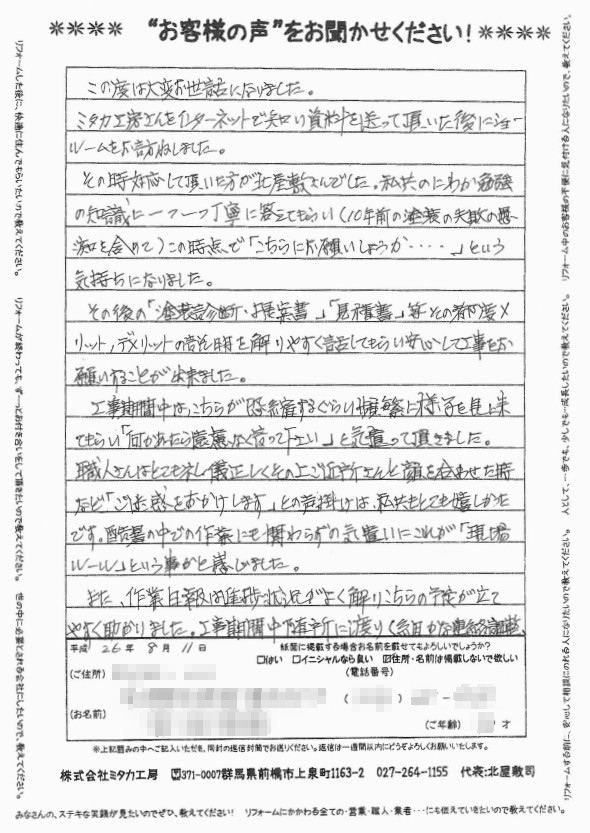 “お客様の声”をお聞かせください!
この度は大変お世話になりました。
ミタカ工房さんをインターネットで知り資料を送って頂いた後にショー
ルームをお訪ねしました。
その時対応して頂いた方が北屋敷さんでした。私共のにわか勉強
の知識に一つ一つ丁寧に答えてもらい(10年前の塗装の失敗の愚
痴を含めて)この時点で「こちらにお願いしようか・・・・」という
気持ちになりました。
その後の「塗装診断・提案書」「見積書」等その都度メ
リット,デメリットの説明を解りやすく話してもらい安心して工事をお
願いすることが出来ました。
工事期間中はこちらが恐縮するぐらい頻繁に様子を見に来
てもらい「何かあったら遠慮なく言って下さい」と気遣って頂きました。
職人さんはとても礼儀正しくその上ご近所さんと顔を合わせた時
など「ご迷惑をおかけします」との声掛けは、私共もとても嬉しかった
です。酷暑の中での作業にも関わらずの気遣いにこれが「現場
ルール」という事かと感じました。
また、作業日報は進捗状況がよく解りこちらの予定が立て
やすく助かりました。工事期間中随所に渡り(細かな連絡調整、
平成 26年 8月 11日
紙面に掲載する場合お名前を載せてもよろしいでしょうか?
□はい □イニシャルなら良い ☑住所・名前は掲載しないで欲しい
(ご住所)
(電話番号)
( )
(お名前)
(ご年齢) 才
※上記囲みの中へご記入いただき、同封の返信封筒でお送りください。返信は一週間以内にどうぞよろしくお願いいたします。
株式会社ミタカ工房 〒371-0007群馬県前橋市上泉町1163-2 027-264-1155 代表:北屋敷司
みなさんの、ステキな笑顔が見たいのでぜひ、教えてください! リフォームにかかわる全ての・営業・職人・業者・・・にも伝えていきたいので教えてください。
リフォームした後に、快適に住んでもらいたいので教えてください。
リフォームが終わっても、ずーっとお付き合いをして頂きたいので教えてください。
世の中に必要とされる会社にしたいので、教えてください。
リフォーム中のお客様の不便に気付ける人になりたいので、教えてください。
人として、一歩でも、少しでも成長したいので教えてください。
リフォームする前に、安心して相談にのれる人になりたいので教えてください。